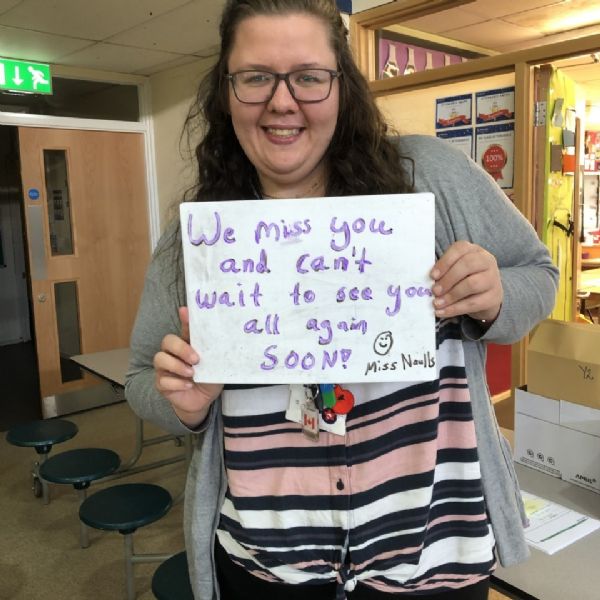 We miss you
and can't
wait to see you
all again
SOON!
Miss Naulls
100%
Y2